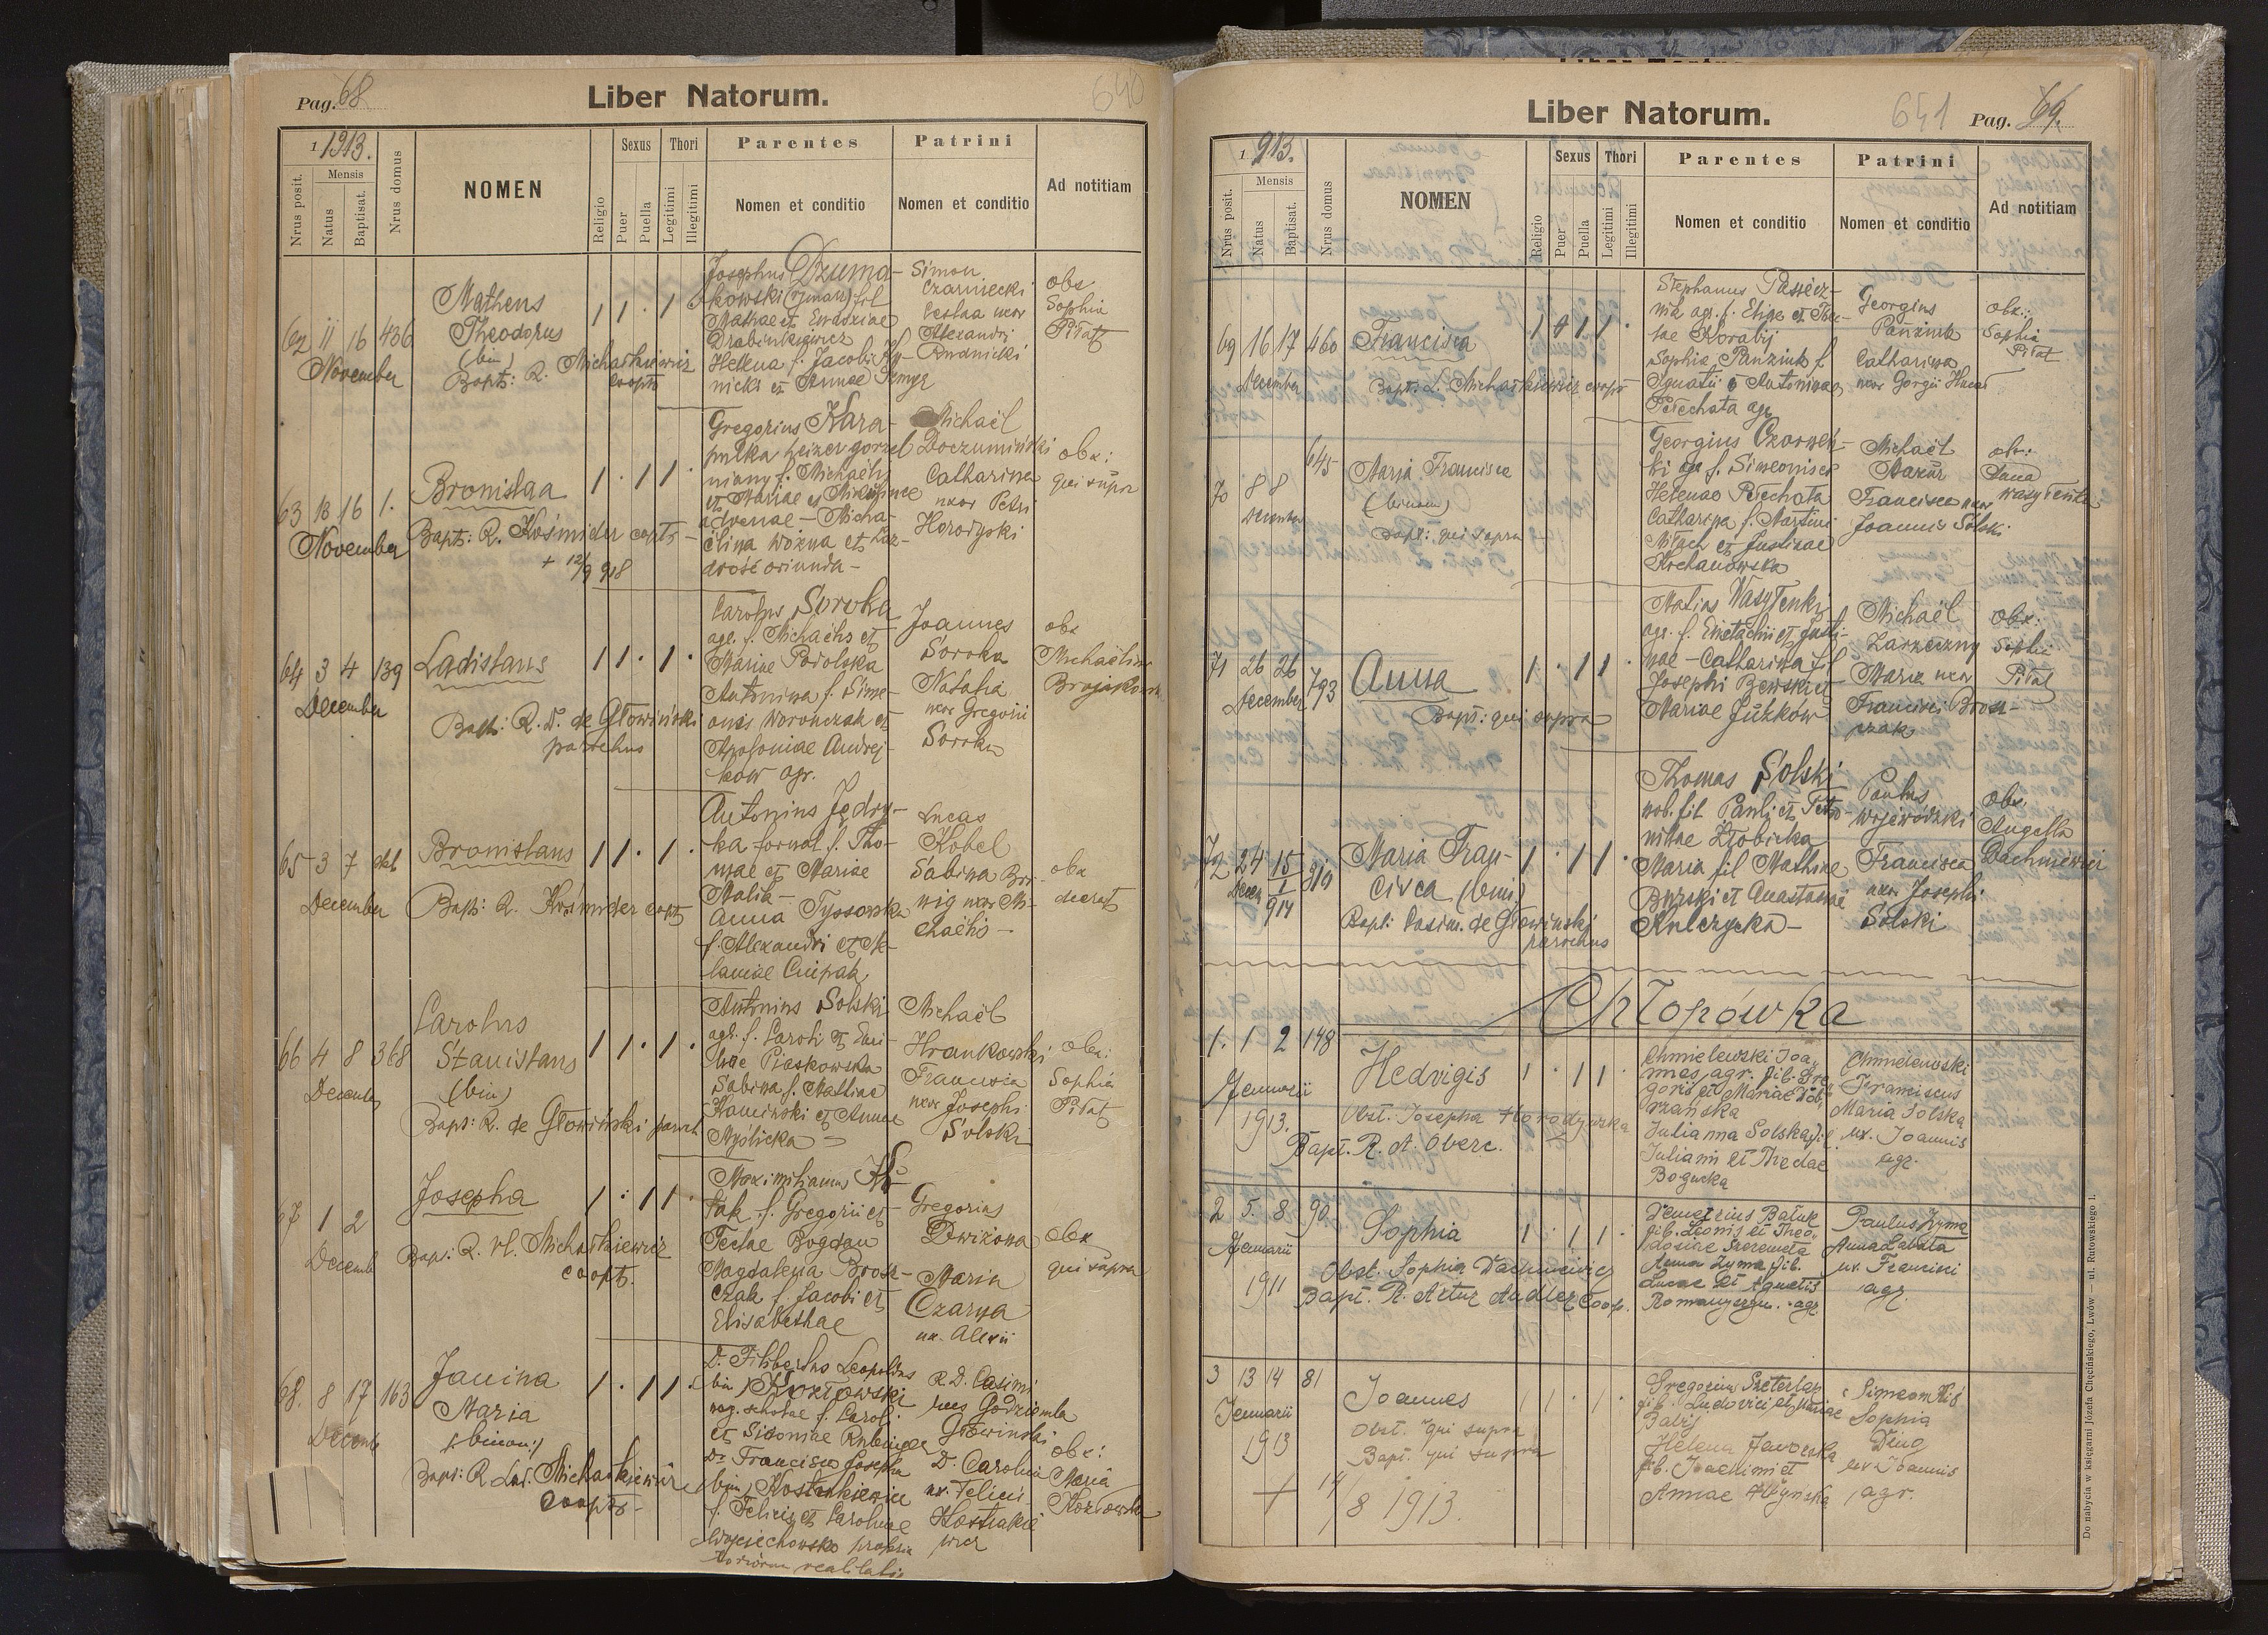 Pag. 68
Liber Natorum.
640
1 1913.
Nrus posit.
Mensis
Natus
Baptisat.
Nrus domus
NOMEN
Religio
Sexus
Puer
Puella
Thori
Legitimi
Illegitimi
Parentes
Nomen et conditio
Patrini
Nomen et conditio
Ad notitiam
62 11 16 436
November
Matheus
Theodorus
(bin)
Bapt: R. Michałkiewicz
coopt
1 1 . 1 .
Josephus Dzuma-
kowski fil
Mathae et Eudoxiae
Drabinkiewicz
Helena f. Jacobi
nicki et Annae
Simon
Czarniecki
uxor
Alexandri
Rudnicki
obs
Sophia
Pitat
63 13 16 1.
November
Bronisłaa
Bapt: R. Kośmider coopt
+ 12/9 918
1 . 1 1 .
Gregorius Kara-
pulka heizer gorzel
niany f. Michaelis
et Mariae
advenae - Micha-
elina Woźna et
oriunda -
Michaël
Doczumiński
Catharina
uxor Petri
Horodyski
obs:
qui supra
64 3 4 139
December
Ladislaus
Bapt: R. D. de Głowiński
parochus
1 1 . 1 .
Carolus Soroka
agr. f. Michaelis et
Mariae Podolska
Antonina f. Sime-
onis Woronczak et
Apoloniae Andrej-
kow agr.
Joannes
Soroka
Natalia
uxor Gregorii
Soroka
obs
Michaelina
65 3 7
December
Bronislaus
Bapt: R. Kośmider coopt
1 1 . 1 .
Antonius Jędry-
ka fornal f. Tho-
mae et Mariae
Malik -
Anna Tyssowska
f. Alexandri et
Ciupak
Lucas
Kobel
Sabina
nig uxor Mi-
chaëlis -
obs
decrat
66 4 8 368
December
Carolus
Stanislaus
(bin)
Bapt: R. de Głowiński paroch
1 1 . 1 .
Antonius Solski
agr. f. Caroli et
Piaskowska
Sabina f. Mathiae
Kamiński et Annae
Myślicka -
Michaël
Hrankowski
Francisca
uxor Josephi
Solski
obs:
Sophia
Pitat
67 1 2
Decemb
Josepha
Bapt: R. Vl. Michałkiewicz
coopt.
1 . 1 1 .
Maximilianus
f. Gregorii et
Teclae Bogdan
Magdalena Brosz-
czak f. Jacobi et
Elisabethae
Gregorius
Dwizowa
Maria
Czarna
ux. Alexii
obs
qui supra
68. 8 17 163
Decemb
Janina
Maria
(binom)
Bapt: R. Lad. Michałkiewicz
coopts -
1 . 1 1 .
D. Filibertus Leopoldus
(bin) Kozłowski
mag. scholae f. Caroli
et Sidoniae
Da Francisca Josepha
(bin) Kostrakiewicz
f. Felicis et Carolinae
Wojciechowska
realitatis
R. D. Casimi
rus Godziemba
Głowiński
D. Carolina
ux. Felicis
Kostrakie
wicz
obs:
Maria
Kozłowska
Liber Natorum.
641
Pag. 69.
1 913.
Nrus posit.
Mensis
Natus
Baptisat.
Nrus domus
NOMEN
Religio
Sexus
Puer
Puella
Thori
Legitimi
Illegitimi
Parentes
Nomen et conditio
Patrini
Nomen et conditio
Ad notitiam
69 16 17 460
December
Francisca
Bapt: L. Michałkiewicz coopt
Stephanus Pasiecz-
nik agr. f. Eliae et The-
lae Korabij
Sophia Panziuk f.
Ignatii et Antoninae
Perchata agr
Georgius
Panziuk
Catharina
uxor Gorgii
obs.:
Sophia
Pitat
70 8 8 645
December
Maria Francisca
(binom)
Bapt: qui supra
Georgius Czorneń-
ki agr f. Simeonis et
Helenae Perchata
Catharina f. Martini
et Justinae
Krchanowska
Michaël
Mazur
Francisca uxor
Joannis Solski
obs:
Anna
Wasylenka
71 26 26 793
December
Anna
Bapt: qui supra
1 . 1 1 .
Matias Wasylenki
agr. f. Eustachii et Justi-
nae - Catharina fil
Josephi Bewski et
Mariae Jużków
Michaël
Zarzeczny
Maria uxor
Francisci Brosz-
czak
obs:
Sophia
Pitat
72 24 15 919
Decem 1
914
Maria Fran-
cisca (bin)
Bapt: Casim. de Głowiński
parochus
1 . 1 1 .
Thomas Solski
nob. fil Pauli et Petro-
nillae Żłobicka
Maria fil Mathiae
Burski et Anastasiae
Kulczycka -
Paulus
Wojewódzki
Francisca
uxor Josephi
Solski
obs.
Angella
Dachniewicz
Chłopówka
1. 1 2 148
Jenuarii
1913.
Hedvigis
Obst. Josepha Horodywska
Bapt. R. A. Oberc.
1 . 1 1 .
Chmielewski Joa-
nnes, agr. fil. Gre-
gorii et Mariae Dob-
rzańska
Julianna Solska, fil.
Juliani et Theclae
Bogucka
Chmielewski
Franciscus
Maria Solska
ux. Joannis
agr.
2 5. 8 90
Jenuarii
1911
Sophia
Obst. Sophia Dachniewicz
Bapt. R. Artur Andler Coop.
1 . 1 1 .
Demetrius Batuk
fil. Leonis et Theo-
dosiae Szeremeta
Anna Zyma, fil.
Lucae et Agnetis
Romanyszyn. agr.
Paulus Zyma
Anna Labata
ux. Francisci
agr.
3 13 14 81
Jenuarii
1913
Joannes
Obst. qui supra
Bapt. qui supra
+ 14/8 1913.
1 1 . 1 .
Gregorius Szeterlap
fil. Ludovici et Mariae
Babij
Helena Jaworska
fil. Joachimi et
Annae
Simeon
Sophia
Ding
ux. Joannis
agr.
Do nabycia w księgarni Józefa Chęcińskiego, Lwów ul. Rutowskiego 1.